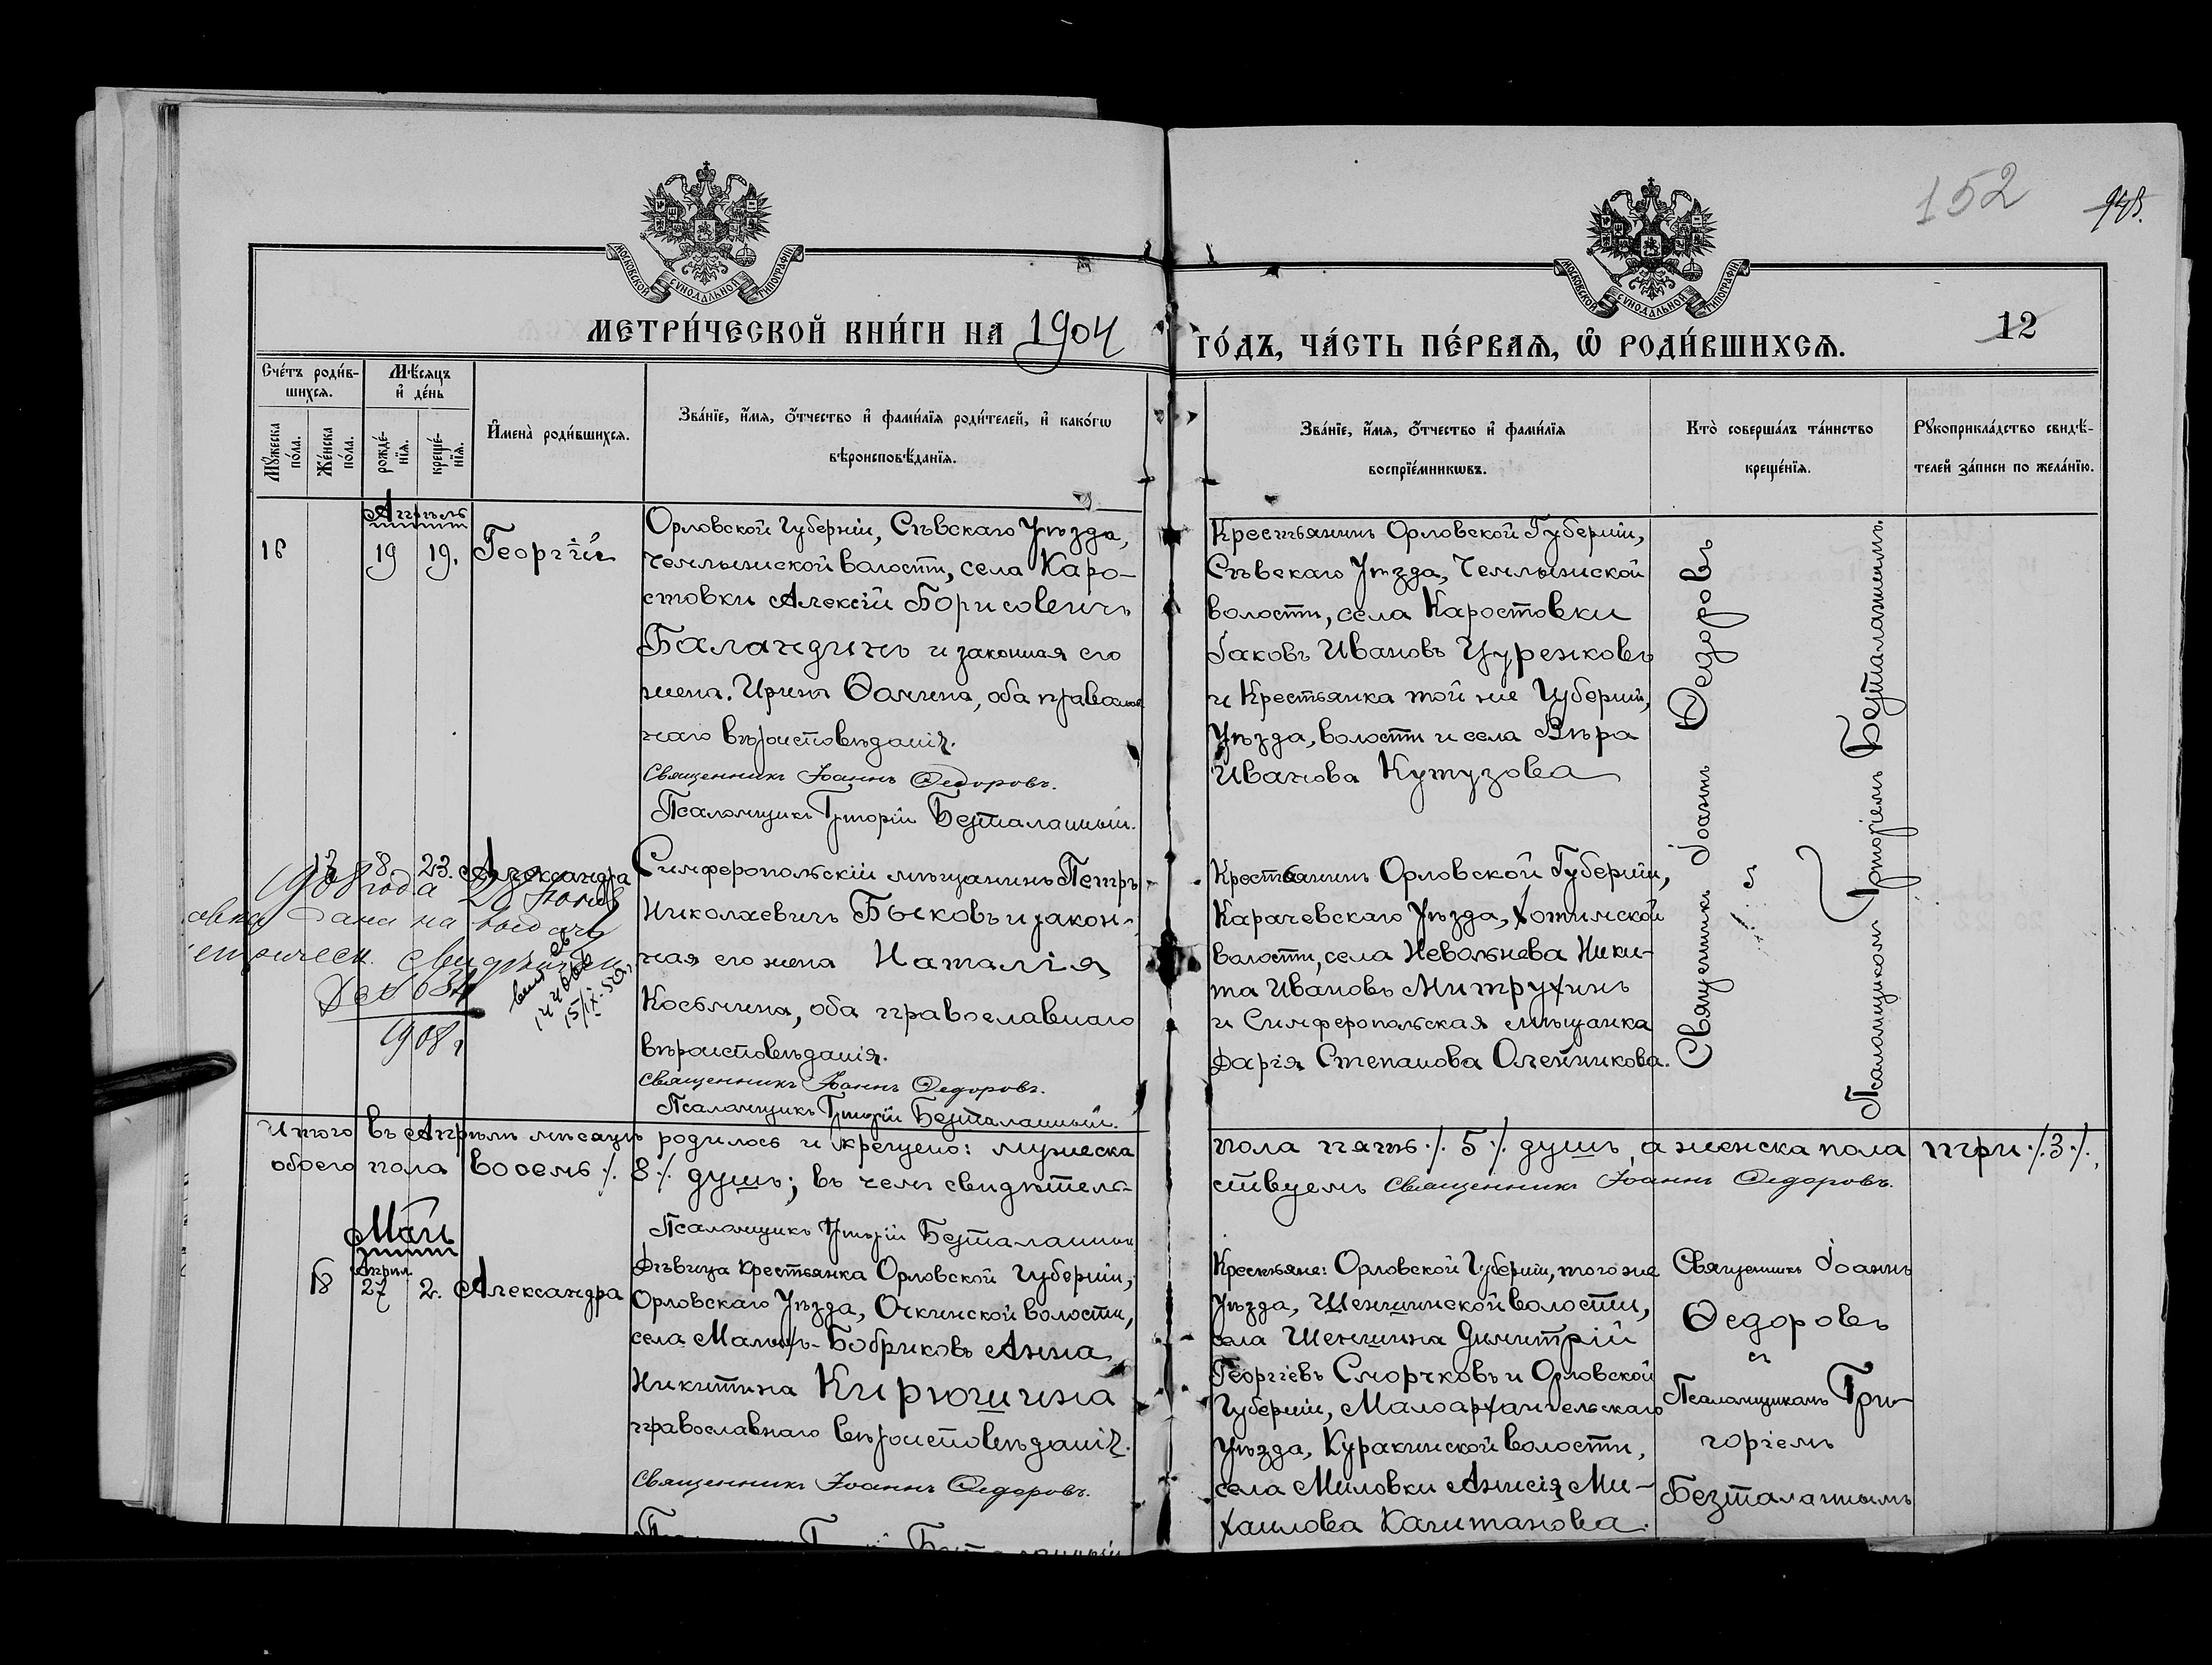 152
948.
МОСКОВСКОЙ СѴНОДАЛЬНОЙ ТИПОГРАФІИ
МОСКОВСКОЙ СѴНОДАЛЬНОЙ ТИПОГРАФІИ
МЕТРИ́ЧЕСКОЙ КНИ́ГИ НА 1904
ГО́ДЪ, ЧА́СТЬ ПЕ́РВАѦ, Ѡ҆ РОДИ́ВШИХСѦ.
12
Сче́тъ роди́в-
шихсѧ.
Мꙋ́жеска
по́ла.
Же́нска
по́ла.
Мѣ́сѧцъ
и҆ де́нь
рожде́-
нїѧ.
креще́-
нїѧ.
И҆мена̀ роди́вшихсѧ.
Зва́нїе, и҆́мѧ, ѻ҆́тчество и҆ фами́лїѧ роди́телей, и҆ како́гѡ
вѣроисповѣ́данїѧ.
Зва́нїе, и҆́мѧ, ѻ҆́тчество и҆ фами́лїѧ
воспрїе́мникѡвъ.
Кто̀ соверша́лъ та́инство
креще́нїѧ.
Рꙋкоприкла́дство свидѣ́-
телей за́писи по жела́нїю.
Апрѣль
16
19
19.
Георгій
Орловской Губерніи, Сѣвскаго Уѣзда,
Чемлыжской волости, села Каро-
стовки Алексій Борисовичъ
Баландинъ и законная его
жена Ирина Ѳомина, оба православ-
наго вѣроисповѣданія.
Священникъ Іоаннъ Ѳедоровъ.
Псаломщикъ Григорій Безталанный.
Крестьянинъ Орловской Губерніи,
Сѣвскаго Уѣзда, Чемлыжской
волости, села Каростовки
Іаковъ Ивановъ Цуренковъ
и Крестьянка той же Губерніи,
Уѣзда, волости и села Вѣра
Иванова Кутузова
Священникъ Іоаннъ Ѳедоровъ
Псаломщикомъ Григоріемъ Безталаннымъ.
8
23.
Александра
Симферопольскій мѣщанинъ Петръ
Николаевичъ Быковъ и закон-
ная его жена Наталія
Косьмина, оба православнаго
вѣроисповѣданія.
Священникъ Іоаннъ Ѳедоровъ.
Псаломщикъ Григорій Безталанный.
Крестьянинъ Орловской Губерніи,
Карачевскаго Уѣзда, Хотимской
волости, села Невольнева Ники-
та Ивановъ Митрухинъ
и Симферопольская мѣщанка
Дарія Степанова Олейникова.
1908 года 20 Іюня
дана на выдачу
1908 г
Итого въ Апрѣлѣ мѣсяцѣ родилось и крещено: мужеска
пола пять ./. 5 ./. душъ, а женска пола три ./. 3 ./.,
обоего пола восемь ./. 8 ./. душъ; въ чемъ свидѣтель-
ствуемъ Священникъ Іоаннъ Ѳедоровъ.
Псаломщикъ Григорій Безталанный
Май
18
Апрѣл.
27
2.
Александра
Дѣвица Крестьянка Орловской Губерніи,
Орловскаго Уѣзда, волости,
села Малыхъ-Бобриковъ Анна
Никитина Кирюшина
православнаго вѣроисповѣданія.
Священникъ Іоаннъ Ѳедоровъ.
Крестьяне: Орловской Губерніи, того же
Уѣзда, Шеншинской волости,
села Шеншина Димитрій
Георгіевъ Сморчковъ и Орловской
Губерніи, Малоархангельскаго
Уѣзда, Куракинской волости,
села Миловки Анисія Ми-
хаилова Капитанова.
Священникъ Іоаннъ
Ѳедоровъ
съ
Псаломщикомъ Гри-
горіемъ
Безталаннымъ